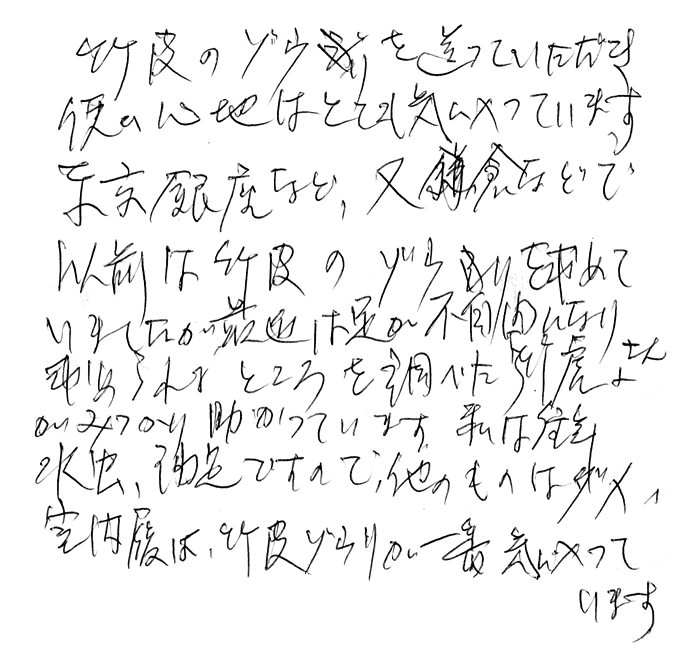 竹皮のゾウリを送っていただき
使い心地はとても気に入っています。
東京銀座など、又鎌倉などで
以前は竹皮のゾウリを求めて
いましたが最近は足が不自由になり
求められるところを調べた竹虎さん
がみつかり助かっています。私は
水虫、ですので、他のものはダメ、
室内履は、竹皮ゾウリが一番気に入って
います